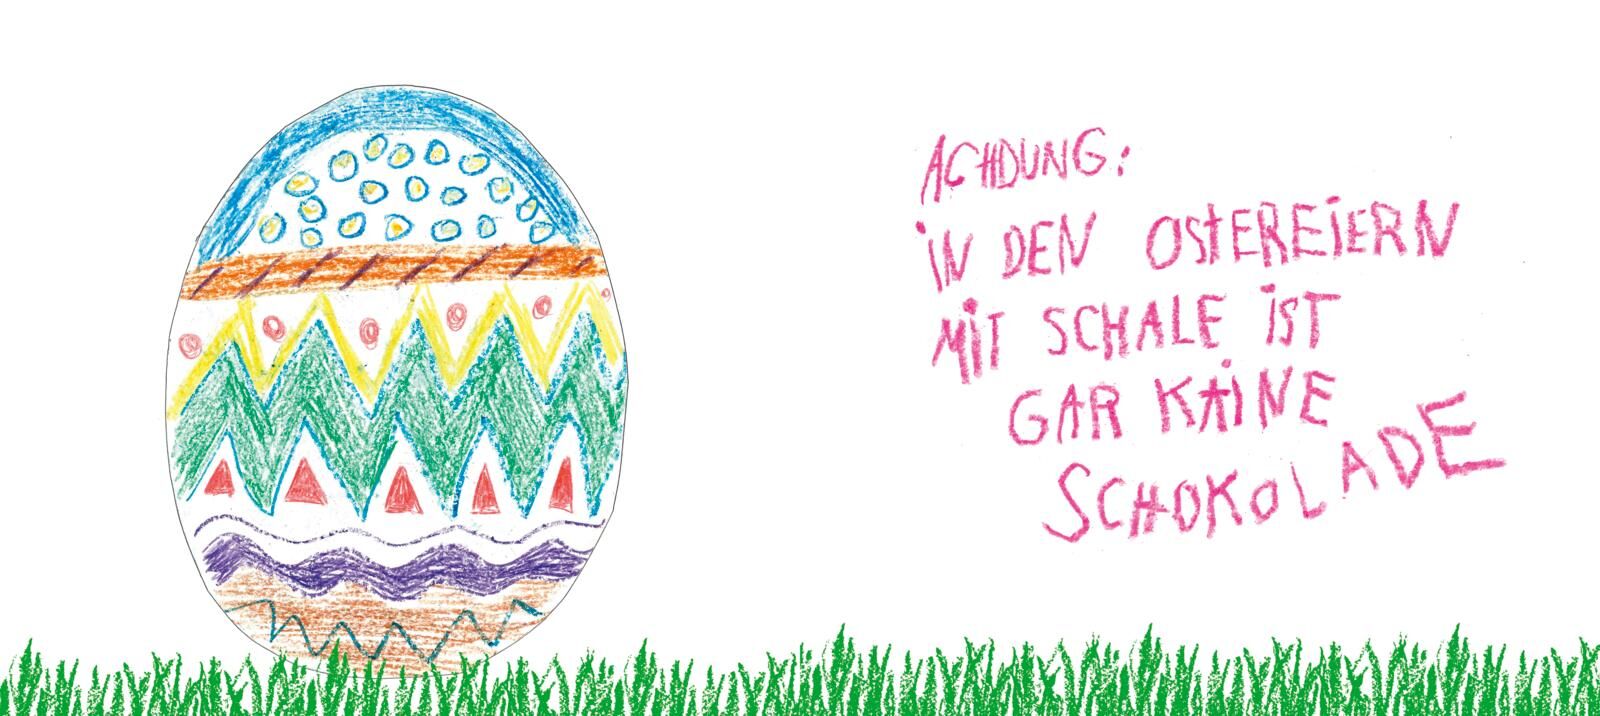 ACHDUNG:
iN DEN OStEREiERN
MiT SCHALE iST
GAR KÄiNE
SCHOKOLADE